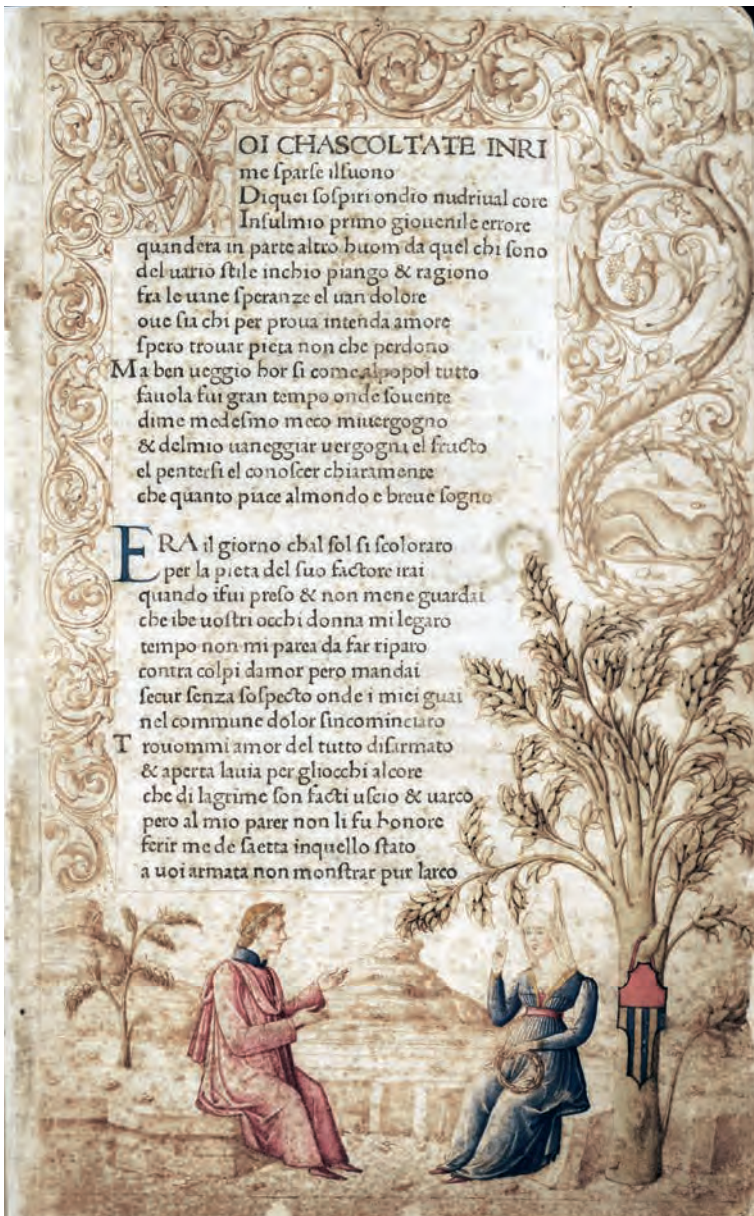 VOI CHASCOLTATE INRI
me sparse ilsuono
Diquei sospiri ondio nudriual core
Insulmio primo giouenile errore
quandera in parte altro huom da quel chi sono
del uario stile inchio piango & ragiono
fra le uane speranze el uan dolore
oue sia chi per proua intenda amore
spero trouar pieta non che perdono
Ma ben ueggio hor si come alpopol tutto
fauola fui gran tempo onde souente
dime medesmo meco miuergogno
& delmio uaneggiar uergogna el fructo
el pentersi el conoscer chiaramente
che quanto piace almondo e breue sogno
ERA il giorno chal sol si scoloraro
per la pieta del suo factore irai
quando ifui preso & non mene guardai
che ibe uostri occhi donna mi legaro
tempo non mi parea da far riparo
contra colpi damor pero mandai
secur senza sospecto onde i miei guai
nel commune dolor sincominciaro
Trouommi amor del tutto disarmato
& aperta lauia per gliocchi alcore
che di lagrime son facti uscio & uarco
pero al mio parer non li fu honore
ferir me de saetta inquello stato
a uoi armata non monstrar pur larco